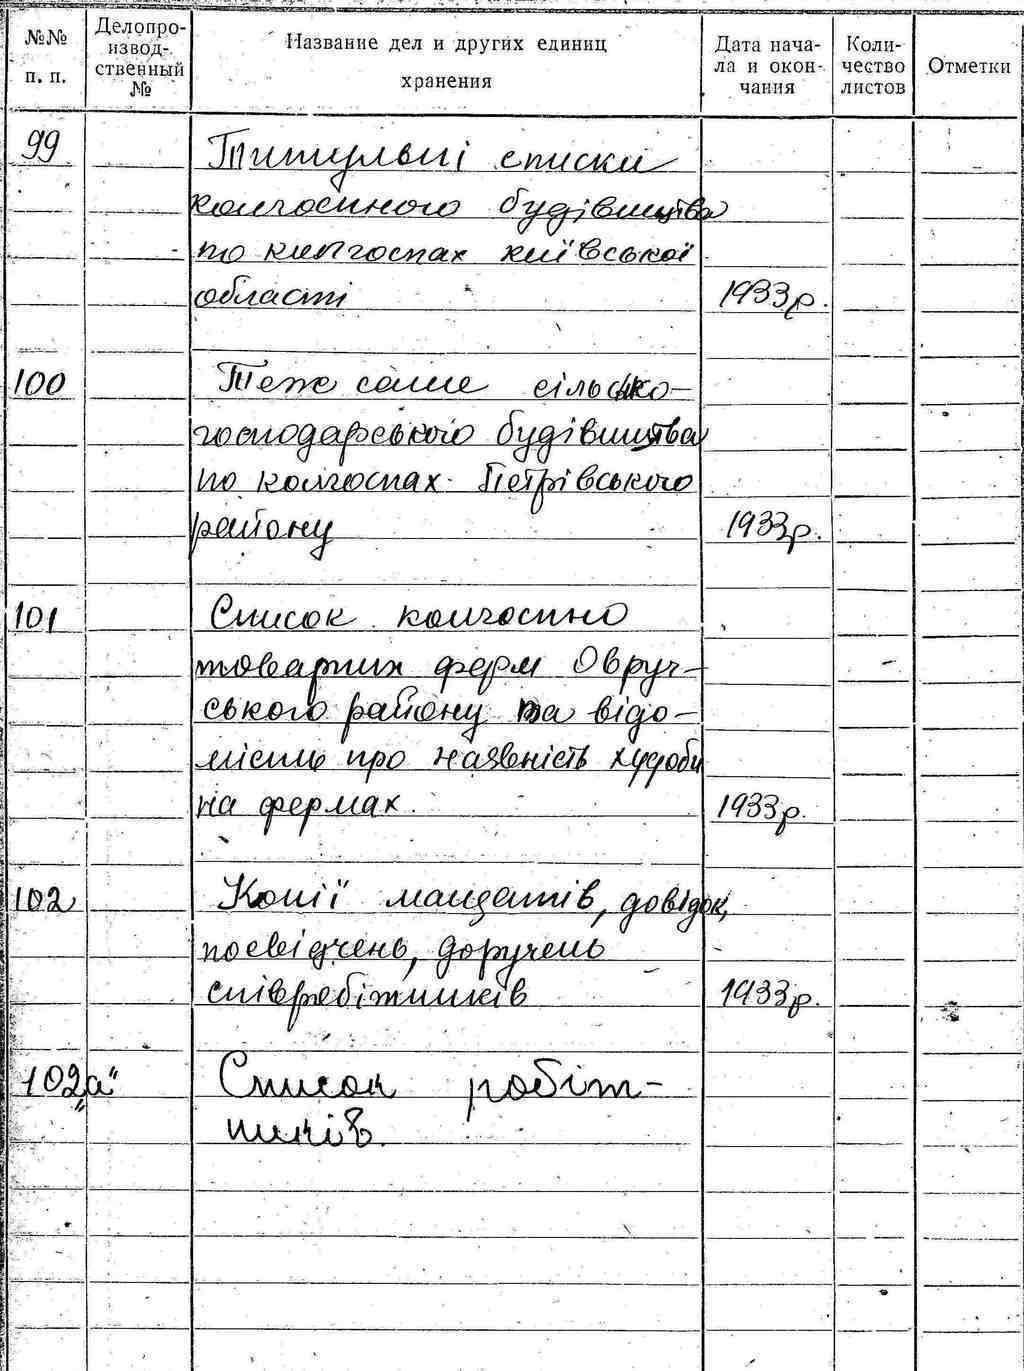 №№ п. п.
Делопроизвод-
ственный
№
Название дел и других единиц
хранения
Дата нача-
ла и окон-
чания
Коли-
чество
листов
Отметки
99 Титульні списки
колгоспного будівництва
по колгоспах київської
області 1933р.
100 Теж саме сільсько-
господарського будівництва
по колгоспах Петрівського
району 1933р.
101 Список колгоспно
товарних ферм Овруч-
ського району та відо-
мість про наявність худоби
на фермах. 1933р.
102 Копії мандатів, довідок,
посвідчень, доручень
співробітників 1933р.
102„а" Список робіт-
ників.